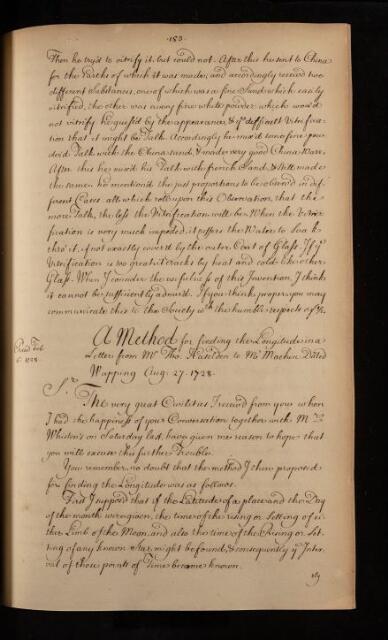 ·153·
Then he try'd to vitrify it, but could not. After this he sent to China
for the Earths of which it was made; and accordingly receiv'd two
different Substances, one of which was a fine Sand which easily
vitrified; the other was a very fine white powder which wou'd
not vitrify. he guess'd by the appearance, & ye difficult Vitrifica-
tion that it might be Talk. Accordingly he mix'd some fine pow-
der'd Talk with the China sand, & made very good China Ware.
After this he mix'd his Talk with french Sand, & still made
the same. he mention'd the just proportions to be observ'd in dif-
ferent Cases all which rests upon this Observation, that the
more Talk, the less the Vitrification will be. When the Vitri-
fication is very much impeded, it suffers the Water to soak
thro' it, if not exactly cover'd by the outer Coat of Glass. If ye
Vitrification is too great it cracks by heat and cold like other
Glass. When I consider the usefulness of this Invention, I think
it cannot be sufficiently admir'd. If you think proper you may
communicate this to the Society wth the humble respects of &c.
A Method for finding the Longitude in a
Letter from Mr Tho. Hawkden to Mr Machin Dated
Wapping Aug: 27. 1728.
Read Feb.
6. 1728.
Sr.
The very great Civilities I receiv'd from you when
I had the happiness of your Conversation together with Mr
Whiston's on Saturday last, have given me reason to hope that
you will excuse this further Trouble.
You remember no doubt that the method I then proposed
for finding the Longitude was as follows.
First I suppos'd that if the Latitude of a place and the Day
of the month were given, the time of the rising or Setting of ei-
ther Limb of the Moon, and also the time of the Rising or Set-
ting of any known Star, might be found, & consequently ye Inter-
val of those points of Time became known.